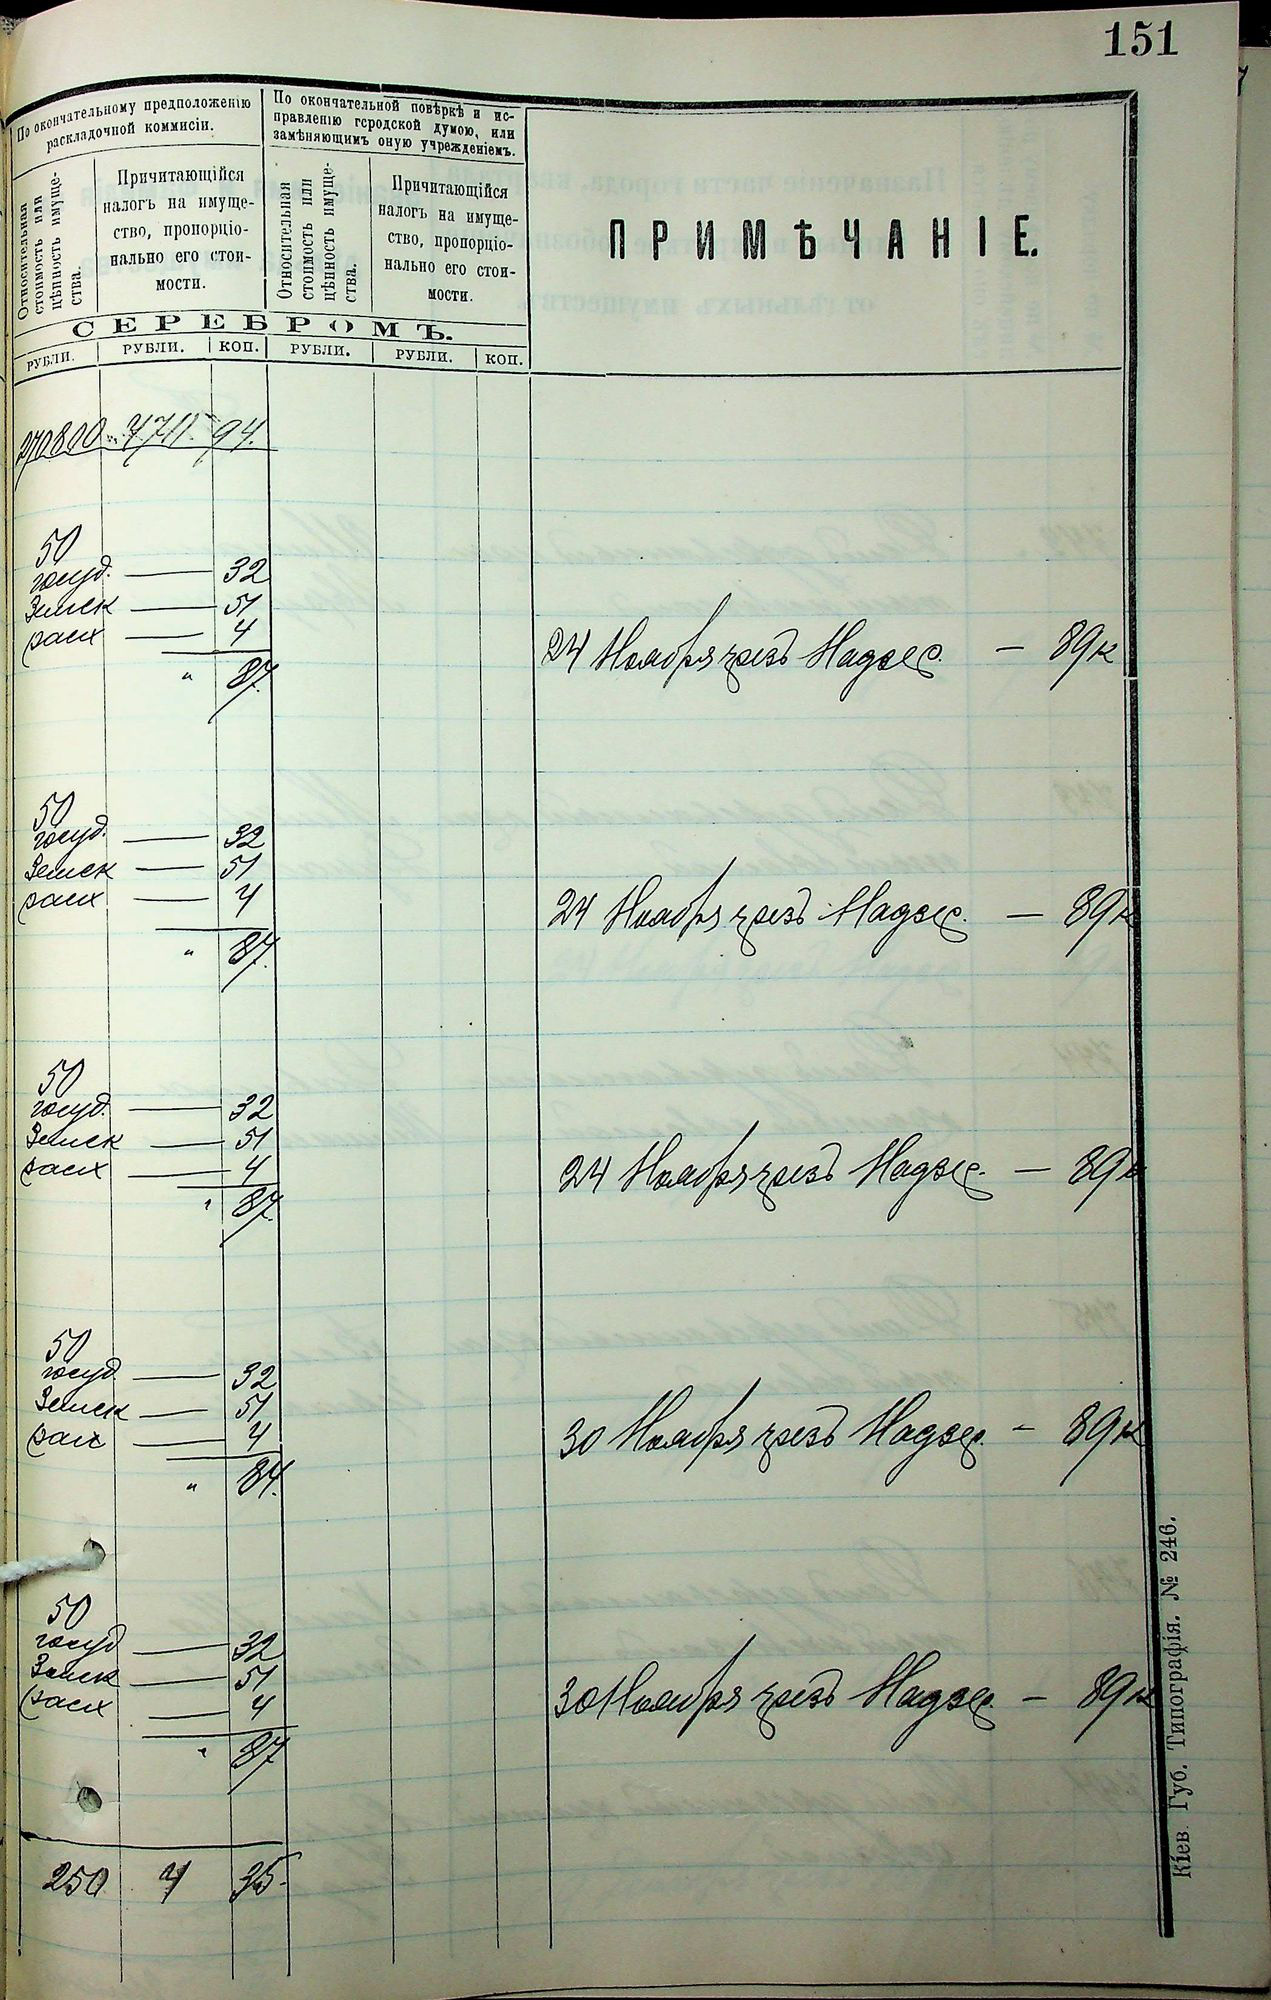 151
По окончательному предположенію
раскладочной коммисіи.
По окончательной повѣркѣ и ис-
правленію городской думою, или
замѣняющимъ оную учрежденіемъ.
Относительная
стоимость или
цѣнность имуще-
ства.
Причитающійся
налогъ на имуще-
ство, пропорціо-
нально его стои-
мости.
Относительная
стоимость или
цѣнность имуще-
ства.
Причитающійся
налогъ на имуще-
ство, пропорціо-
нально его стои-
мости.
ПРИМѢЧАНІЕ.
СЕРЕБРОМЪ.
РУБЛИ. РУБЛИ. КОП. РУБЛИ. РУБЛИ. КОП.
270800 4711 94.
50
госуд. — 32
Земск — 51
расх — 4
" 87.
24 Ноября чрезъ Надзес. — 89к
50
госуд. — 32
Земск — 51
расх — 4
" 87.
24 Ноября чрезъ Надзес. — 89к
50
госуд. — 32
Земск — 51
расх — 4
" 87.
24 Ноября чрезъ Надзес. — 89к
50
госуд. — 32
Земск — 51
расх — 4
" 87.
30 Ноября чрезъ Надзес. — 89к
50
госуд — 32
Земск — 51
расх — 4
" 87
30 Ноября чрезъ Надзес. — 89к
250 4 35.
Кіев. Губ. Типографія. № 246.